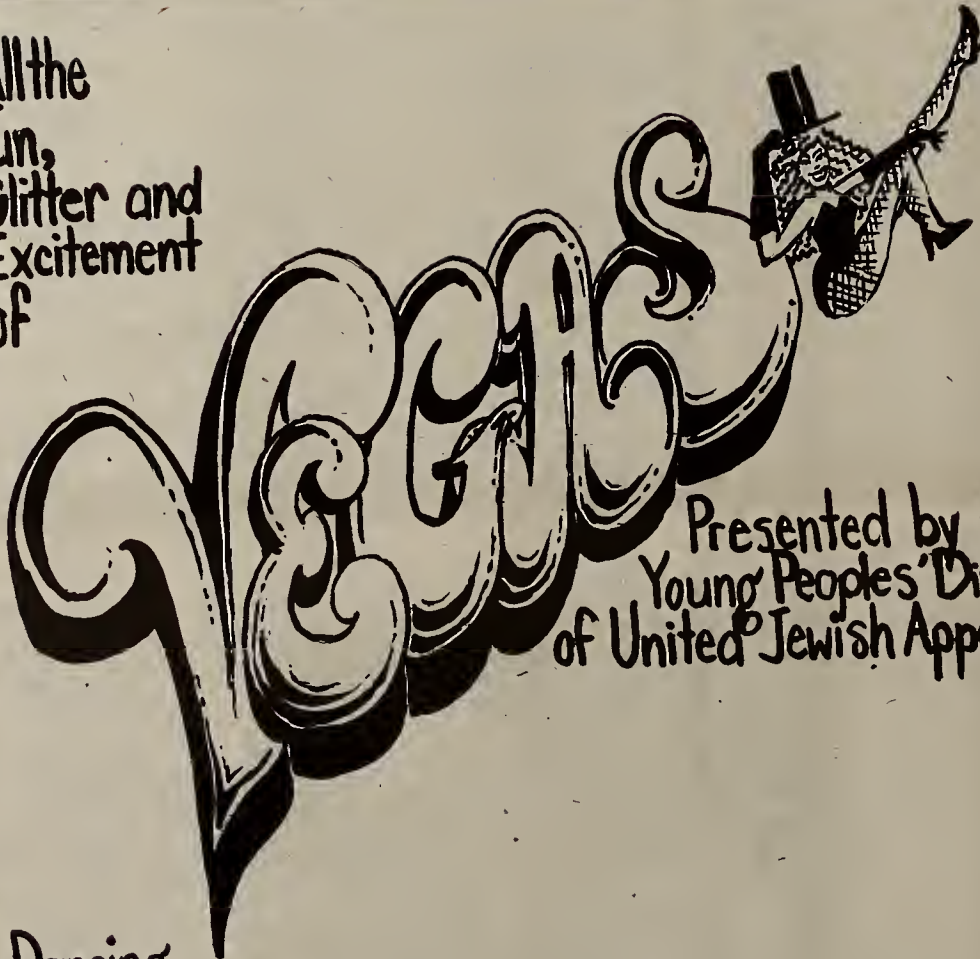 All the
un,
Glitter and
Excitement
of
VEGAS
Presented by
Young Peoples' Di
of United Jewish App
Dancing